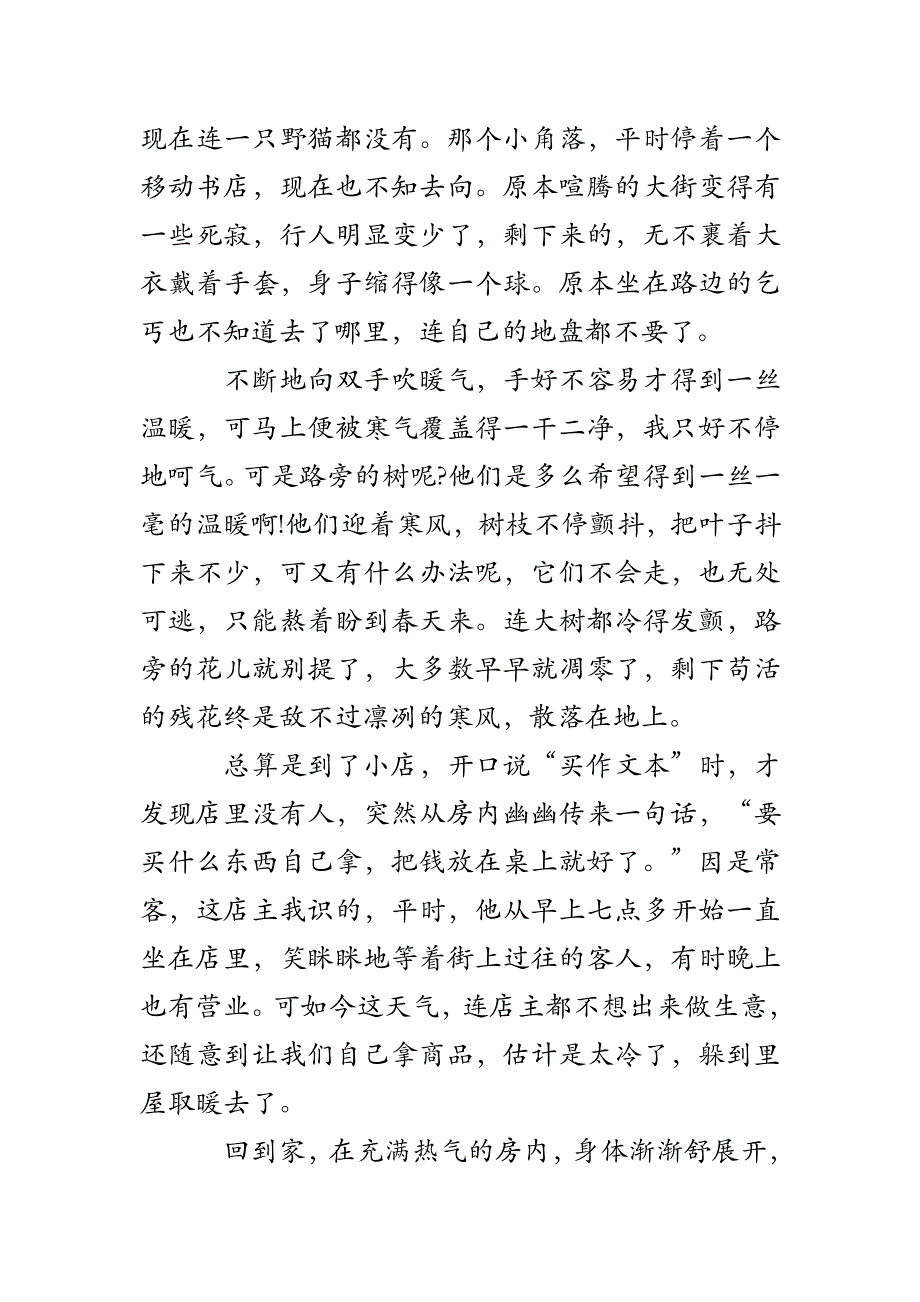 现在连一只野猫都没有。那个小角落，平时停着一个
移动书店，现在也不知去向。原本喧腾的大街变得有
一些死寂，行人明显变少了，剩下来的，无不裹着大
衣戴着手套，身子缩得像一个球。原本坐在路边的乞
丐也不知道去了哪里，连自己的地盘都不要了。
不断地向双手吹暖气，手好不容易才得到一丝
温暖，可马上便被寒气覆盖得一干二净，我只好不停
地呵气。可是路旁的树呢?他们是多么希望得到一丝一
毫的温暖啊!他们迎着寒风，树枝不停颤抖，把叶子抖
下来不少，可又有什么办法呢，它们不会走，也无处
可逃，只能熬着盼到春天来。连大树都冷得发颤，路
旁的花儿就别提了，大多数早早就凋零了，剩下苟活
的残花终是敌不过凛冽的寒风，散落在地上。
总算是到了小店，开口说“买作文本”时，才
发现店里没有人，突然从房内幽幽传来一句话，“要
买什么东西自己拿，把钱放在桌上就好了。”因是常
客，这店主我识的，平时，他从早上七点多开始一直
坐在店里，笑眯眯地等着街上过往的客人，有时晚上
也有营业。可如今这天气，连店主都不想出来做生意，
还随意到让我们自己拿商品，估计是太冷了，躲到里
屋取暖去了。
回到家，在充满热气的房内，身体渐渐舒展开，